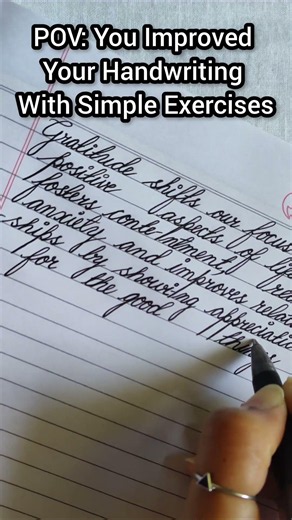 POV: You Improved
Your Handwriting
With Simple Exercises
Gratitude shifts our focus
positive aspects of life
fosters contentment,
anxiety and improves relat
-ships by showing appreciati
for the good things